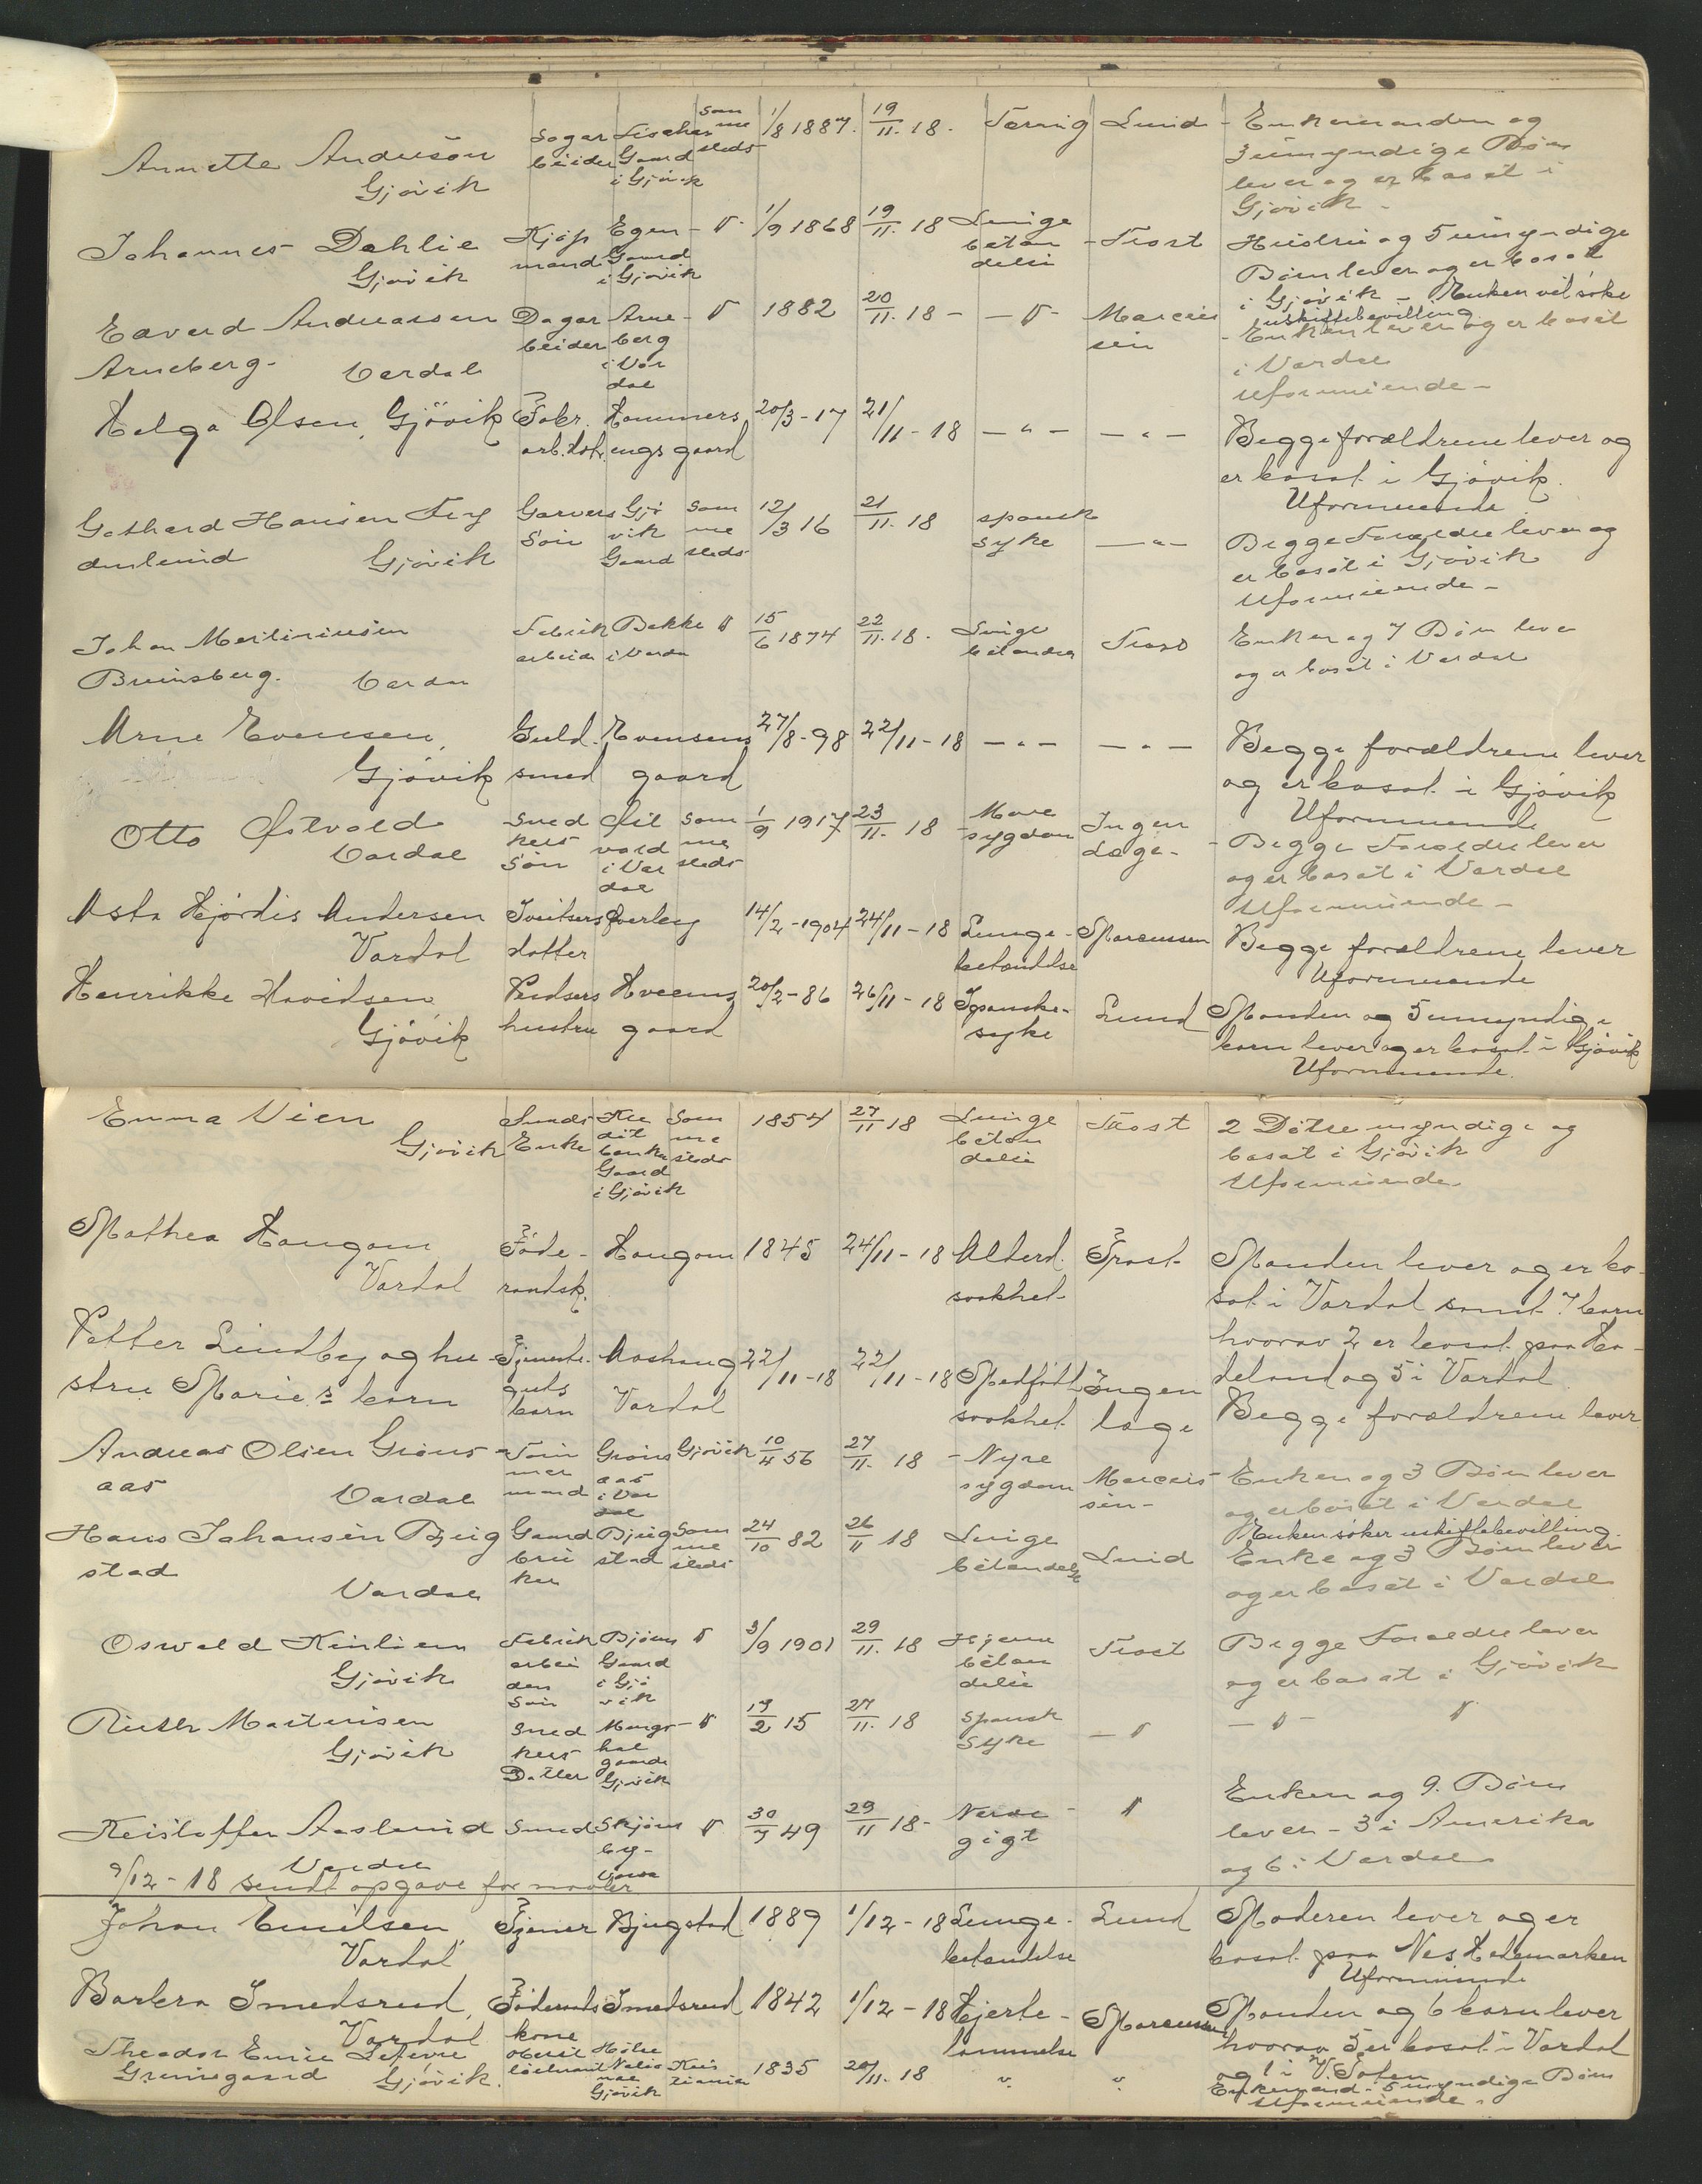 Annette Andersen Gjövik Sagarbeider Fischers Gaard i Gjövik sammesteds 1/8 1887. 19/11. 18. Tæring Lund - Enkemanden og
3 umyndige Börn
lever og er bosat i
Gjövik -
Johannes Dahlie Gjövik Kjöpmand Egen Gaard i Gjövik - " - 1/9 1868 19/11. 18 Lungebetændelse - Trost Hustru og 5 umyndige
Börn lever og er bosat
i Gjövik - Enken vil söke
uskiftebevilling
Edvard Andreassen Arneberg - Vardal Dagarbeider Arneberg i Vardal - " 1882 20/11. 18 - - " - Marcussen - Enken lever og er bosat
i Vardal
Uformuende -
Helga Olsen, Gjövik Fabr. arb. dat. Hammersengs gaard 20/3 - 17 21/11 - 18 - " - - " - Begge forældrene lever og
er bosat i Gjövik.
Uformuende
Gothard Hansen Gjövik Garvers Sön Gjövik Gaard sammesteds 12/3 16 21/11. 18 spansk syke - " - Begge Forældre lever og
er bosat i Gjövik
Uformuende -
Johan Martiniusen Bruinsberg. Vardal Fabrik arbeider Bakke i Vardal " 15/6 1874 22/11. 18. Lungebetændelse Trost Enken og 7 Börn lever
og er bosat i Vardal
Arne Evensen, Gjövik Guldsmed Evensens gaard 27/8 - 98 22/11 - 18 - " - - " - Begge forældrene lever
og er bosat i Gjövik
Uformuende
Otto Östvold Vardal Snedkers Sön Östvold i Vardal sammesteds 1/9 1917 23/11. 18 - Mavesygdom Ingen Læge - - Begge Forældre lever
og er bosat i Vardal
Uformuende -
Asta Hjördis Andersen Vardal Sveitsers datter Överby 14/2 - 1904 24/11 - 18 Lunge-betændelse Marcussen Begge forældrene lever
Uformuende
Henrikke Hovidsen, Gjövik hustru Hveems gaard 20/2 - 86 26/11 - 18 Spanske-syke Lund Manden og 5 umyndige
barn lever og er bosat i Gjövik
Uformuende.
Emma Vien Gjövik Smeds Enke Kreditbankens Gaard i Gjövik sammesteds 1854 27/11 18 Lungebetændelse Trost 2 Dötre myndige og
bosat i Gjövik
Uformuende
Mathea Haugom Vardal Föde-raadsk. Haugom 1845 24/11 - 18 Alderd. svakhet Trost Manden lever og er bo-
sat i Vardal samt 7 barn
hvorav 2 er bosat paa Ha-
deland og 5 i Vardal
Petter Lindby og hustru Marie's barn Tjeneste-guts barn Aashaug Vardal 22/11 - 18 22/11 - 18 Medfödt svakhet Ingen læge Begge forældrene lever
Andreas Olsen Grönsaas Vardal Tömmermand Grönsaas i Vardal Gjövik 10/4 56 27/11. 18 - Nyresygdom Marcussen - Enken og 3 Börn lever
og er bosat i Vardal
Enken söker uskiftebevilling.
Hans Johansen Bjugstad Vardal Gaardbruker Bjugstad sammesteds 24/10 82 26/11 18 Lungebetændelse Lund Enke og 3 Börn lever
og er bosat i Vardal
Oswald Gjövik Fabrik arbeiders Sön Björns Gaard i Gjövik " 3/9 1901 29/11. 18 Hjernebetændelse Trost Begge Forældre lever
og er bosat i Gjövik
Ruth Martinsen Gjövik Snedkers Datter gaard Gjövik - " 19/2 15 27/11. 18 Spansk Syke - " - " - "
Kristoffer Aaslund Vardal Smed Skjönsby - Vardal " 30/7 49 29/11 18 - Nervegigt - " Enken og 9. Börn
lever - 3 i Amerika
og 6 i Vardal
9/12 - 18 sendt opgave for
Johan Emilsen, Vardal Tjener Bjugstad 1889 1/12 - 18 Lunge-betændelse Lund Moderen lever og er
bosat paa Nes Hedemarken
Uformuende
Barbra Smedsrud, Vardal Föderaads kone Smedsrud 1842 1/12 - 18 Hjerte-lammelse Marcussen Manden og 6 barn lever
hvorav 5 er bosat i Vardal
og 1 i V. Toten
Theodor Emil Gjövik. Oberst Gjövik Kristiania 1835 20/11. 18 " " Enkemand - 5 myndige Börn
Uformuende.